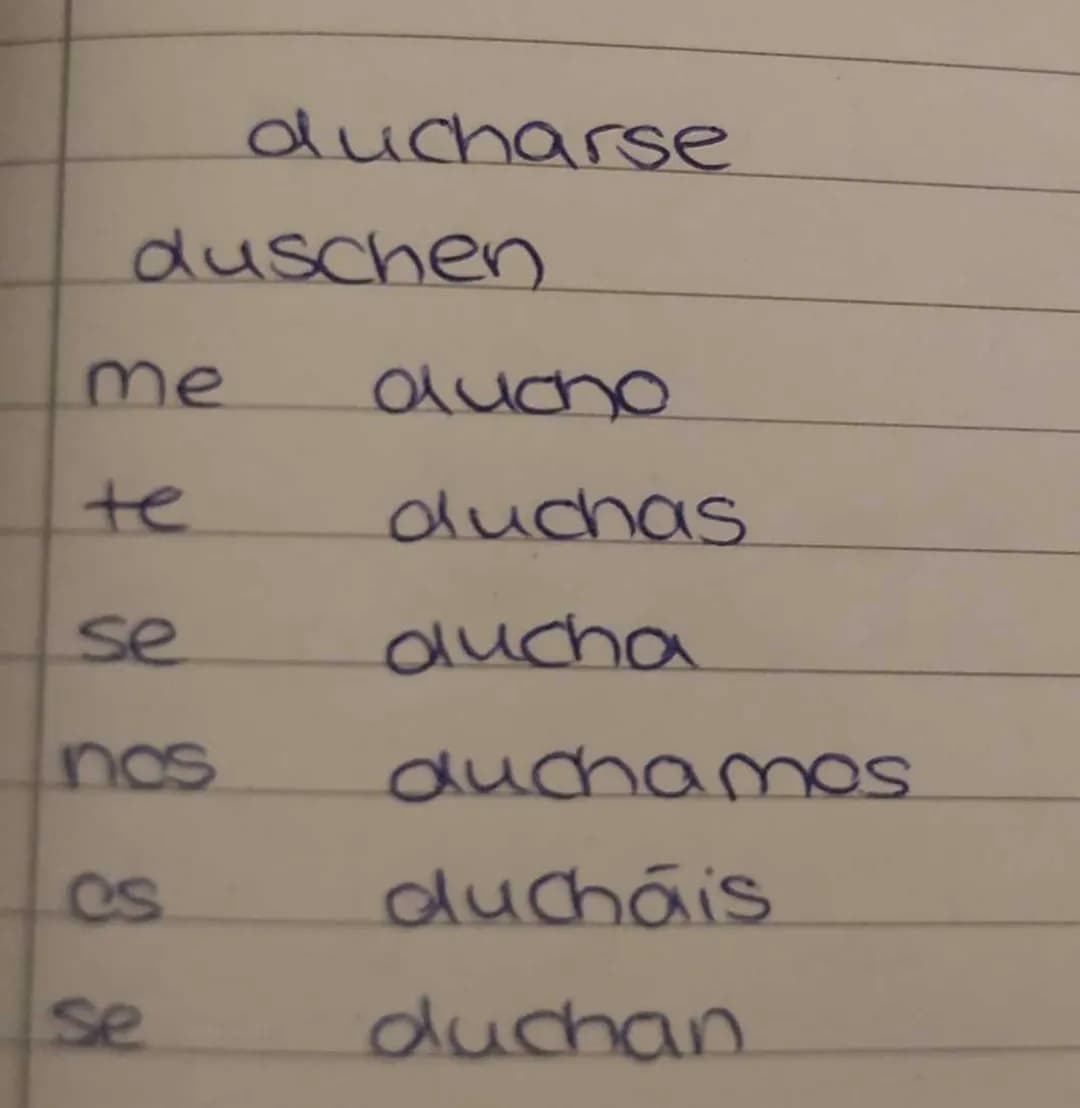 ducharse
duschen
me ducho
te duchas
se ducha
nos duchamos
os ducháis
se duchan